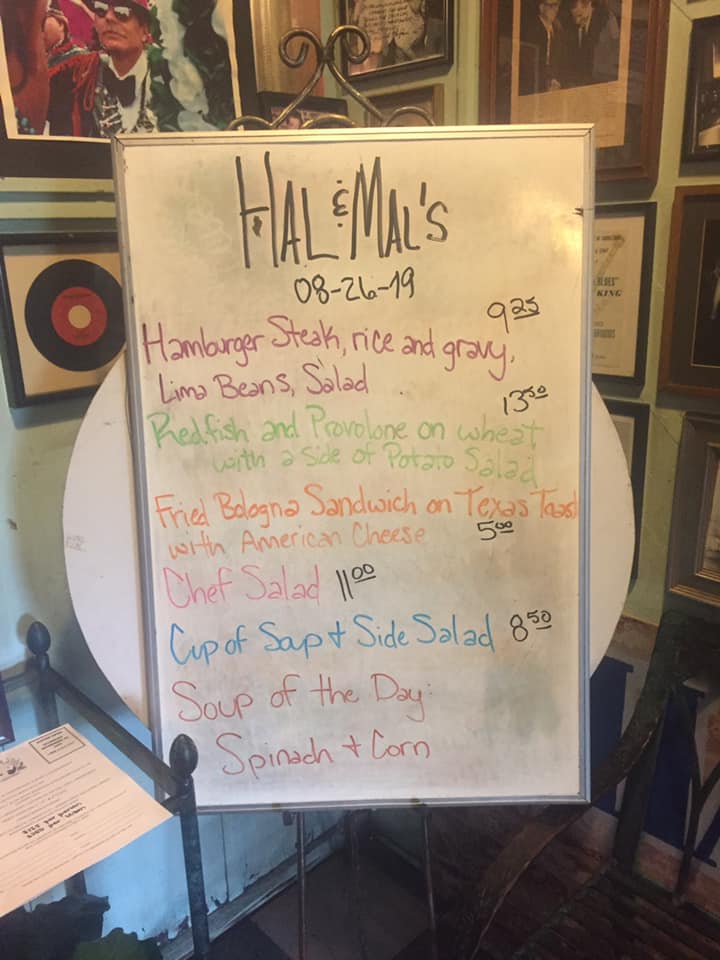 HAL & MAL'S
08-26-19
Hamburger Steak, rice and gravy, 9 25
Lima Beans, Salad
Redfish and Provolone on wheat 13 50
with a side of Potato Salad
Fried Bologna Sandwich on Texas Toast
with American Cheese 5 00
Chef Salad 11 00
Cup of Soup + Side Salad 8 50
Soup of the Day:
Spinach + Corn
BLUES"
KING